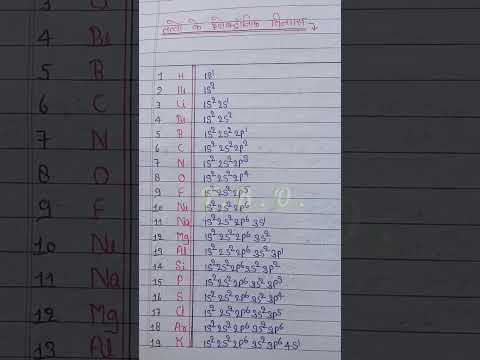 तत्वों के इलेक्ट्रॉनिक विन्यास
1 H 1S¹
2 He 1S²
3 Li 1S² 2S¹
4 Be 1S² 2S²
5 B 1S² 2S² 2P¹
6 C 1S² 2S² 2P²
7 N 1S² 2S² 2P³
8 O 1S² 2S² 2P⁴
9 F 1S² 2S² 2P⁵
10 Ne 1S² 2S² 2P⁶
11 Na 1S² 2S² 2P⁶ 3S¹
12 Mg 1S² 2S² 2P⁶ 3S²
13 Al 1S² 2S² 2P⁶ 3S² 3P¹
14 Si 1S² 2S² 2P⁶ 3S² 3P²
15 P 1S² 2S² 2P⁶ 3S² 3P³
16 S 1S² 2S² 2P⁶ 3S² 3P⁴
17 Cl 1S² 2S² 2P⁶ 3S² 3P⁵
18 Ar 1S² 2S² 2P⁶ 3S² 3P⁶
19 K 1S² 2S² 2P⁶ 3S² 3P⁶ 4S¹